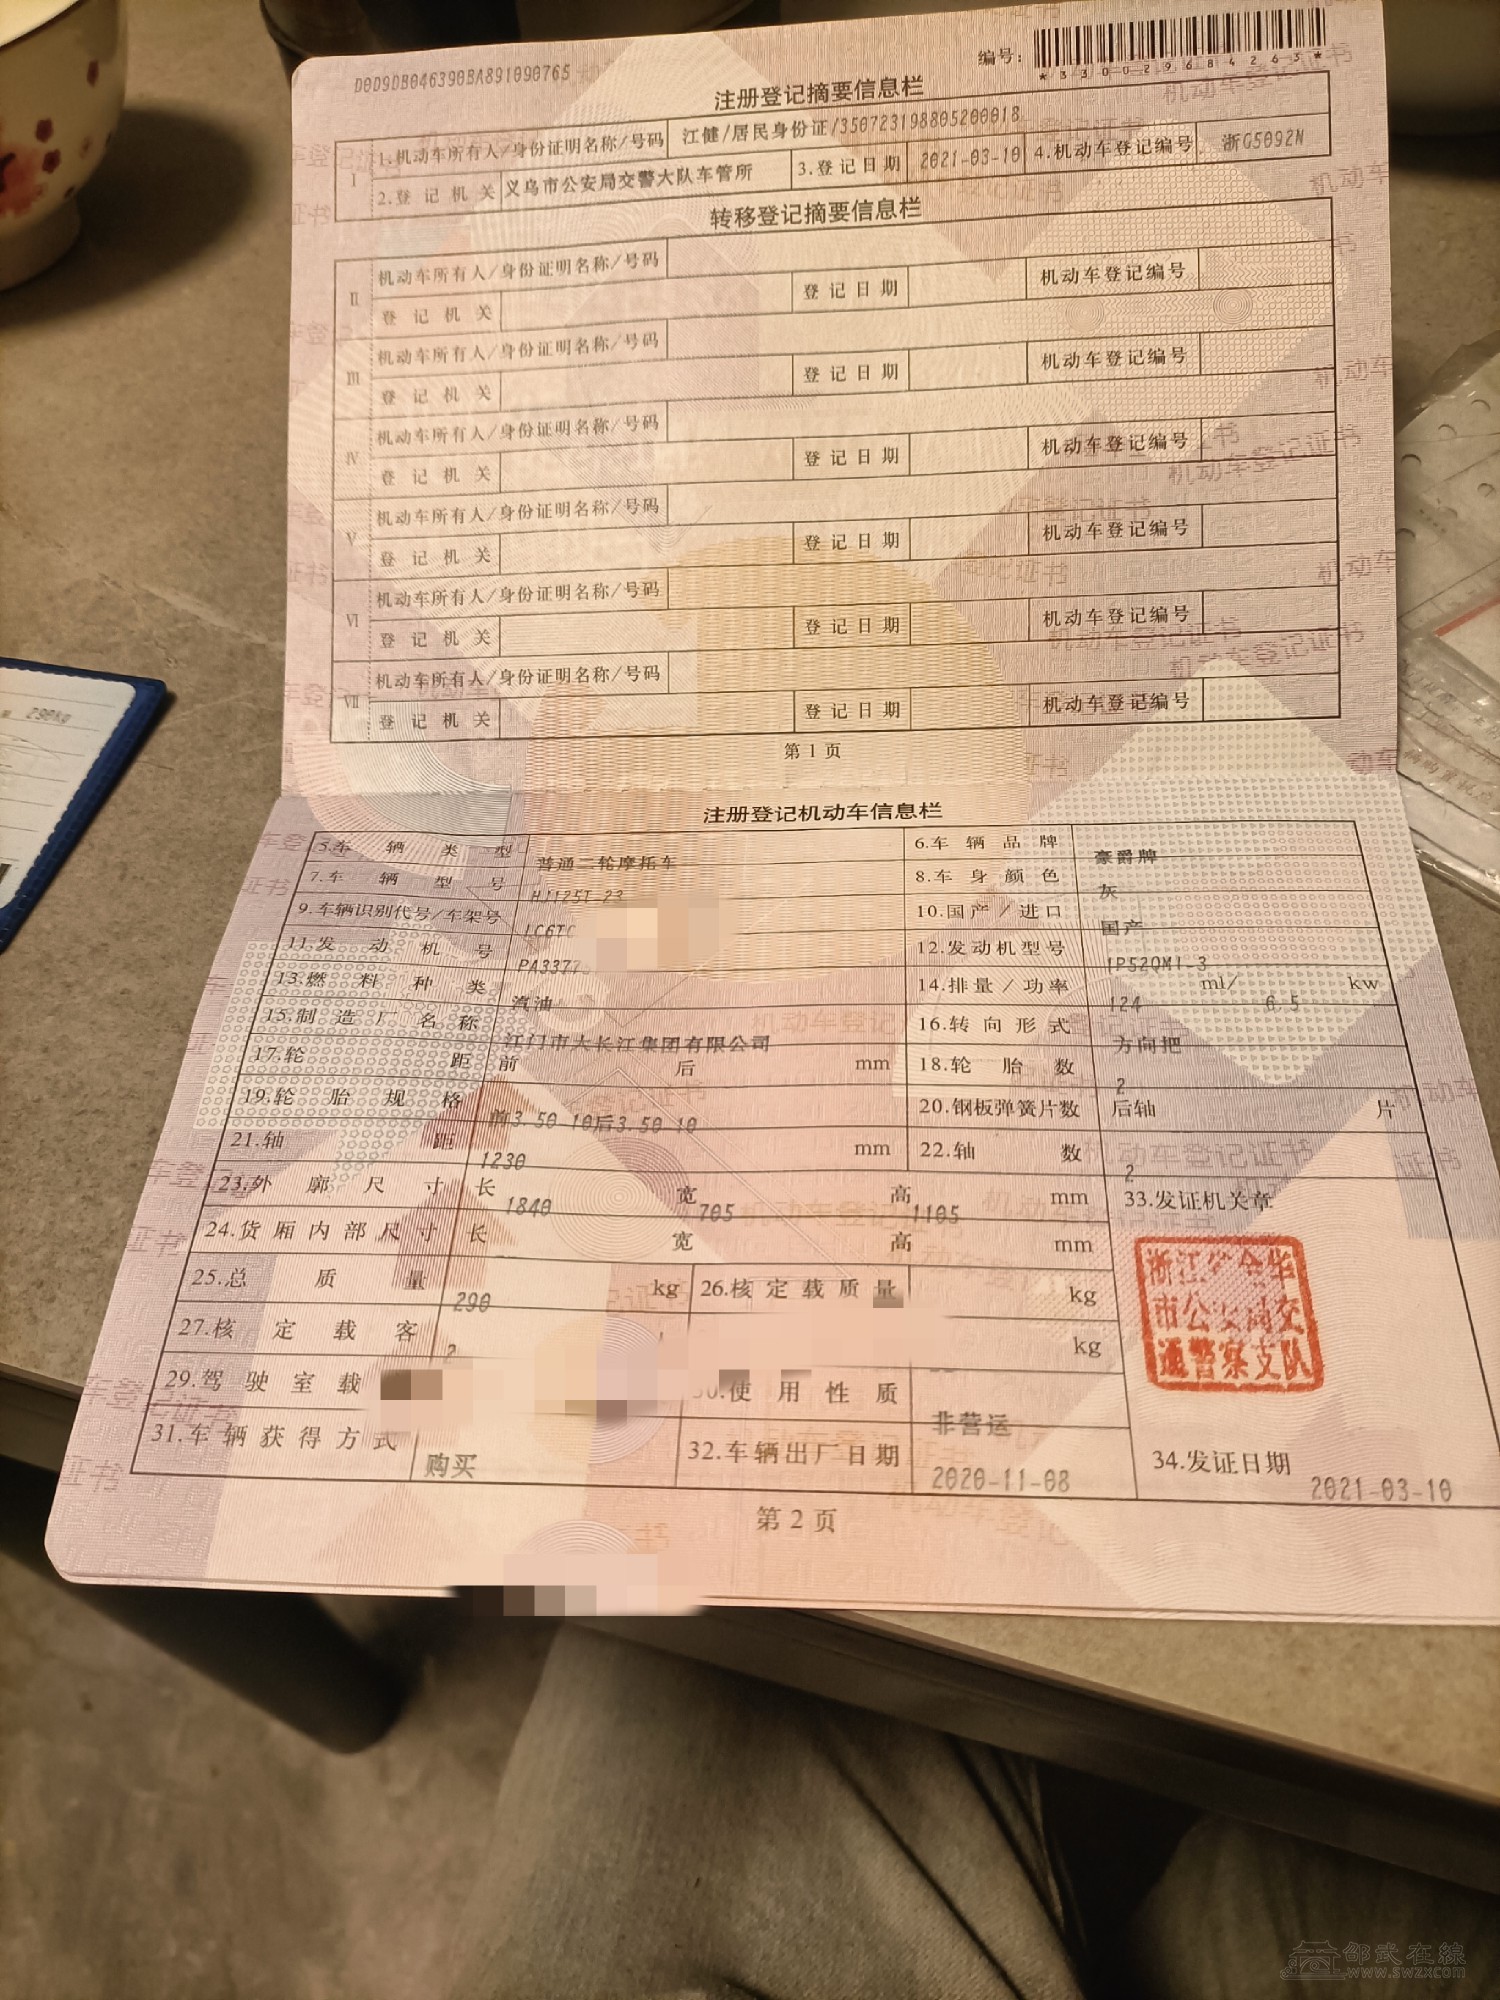 D0D9DB046390BA891090765
编号:
*330029684263*
注册登记摘要信息栏
I 1.机动车所有人/身份证明名称/号码 江健/居民身份证/350723198805200018
2.登记机关 义乌市公安局交警大队车管所 3.登记日期 2021-03-10 4.机动车登记编号 浙G5092N
转移登记摘要信息栏
II 机动车所有人/身份证明名称/号码
登记机关 登记日期 机动车登记编号
III 机动车所有人/身份证明名称/号码
登记机关 登记日期 机动车登记编号
IV 机动车所有人/身份证明名称/号码
登记机关 登记日期 机动车登记编号
V 机动车所有人/身份证明名称/号码
登记机关 登记日期 机动车登记编号
VI 机动车所有人/身份证明名称/号码
登记机关 登记日期 机动车登记编号
VII 机动车所有人/身份证明名称/号码
登记机关 登记日期 机动车登记编号
第1页
注册登记机动车信息栏
5.车辆类型 普通二轮摩托车 6.车辆品牌 豪爵牌
7.车辆型号 HJ125T-23 8.车身颜色 灰
9.车辆识别代号/车架号 LC6TC 10.国产/进口 国产
11.发动机号 PA3377 12.发动机型号 1P52QMI-3
13.燃料种类 汽油 14.排量/功率 124 ml/ 6.5 kw
15.制造厂名称 江门市大长江集团有限公司 16.转向形式 方向把
17.轮距 前 后 mm 18.轮胎数 2
19.轮胎规格 前3.50-10后3.50-10 20.钢板弹簧片数 后轴 片
21.轴距 1230 mm 22.轴数 2
23.外廓尺寸 长 1840 宽 705 高 1105 mm 33.发证机关章
24.货厢内部尺寸 长 宽 高 mm
25.总质量 290 kg 26.核定载质量 kg
27.核定载客 2 kg
29.驾驶室载 使用性质 非营运
31.车辆获得方式 购买 32.车辆出厂日期 2020-11-08
浙江省金华
市公安局交
通警察支队
34.发证日期 2021-03-10
第2页
290kg
邵武在線
www.swzx.com